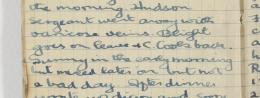 the morning. Hudson
Sergeant went away with
varicose veins. Bengt
goes on leave & C. Cook back.
Sunny in the early morning
but mixed later on but not
a bad day. After dinner